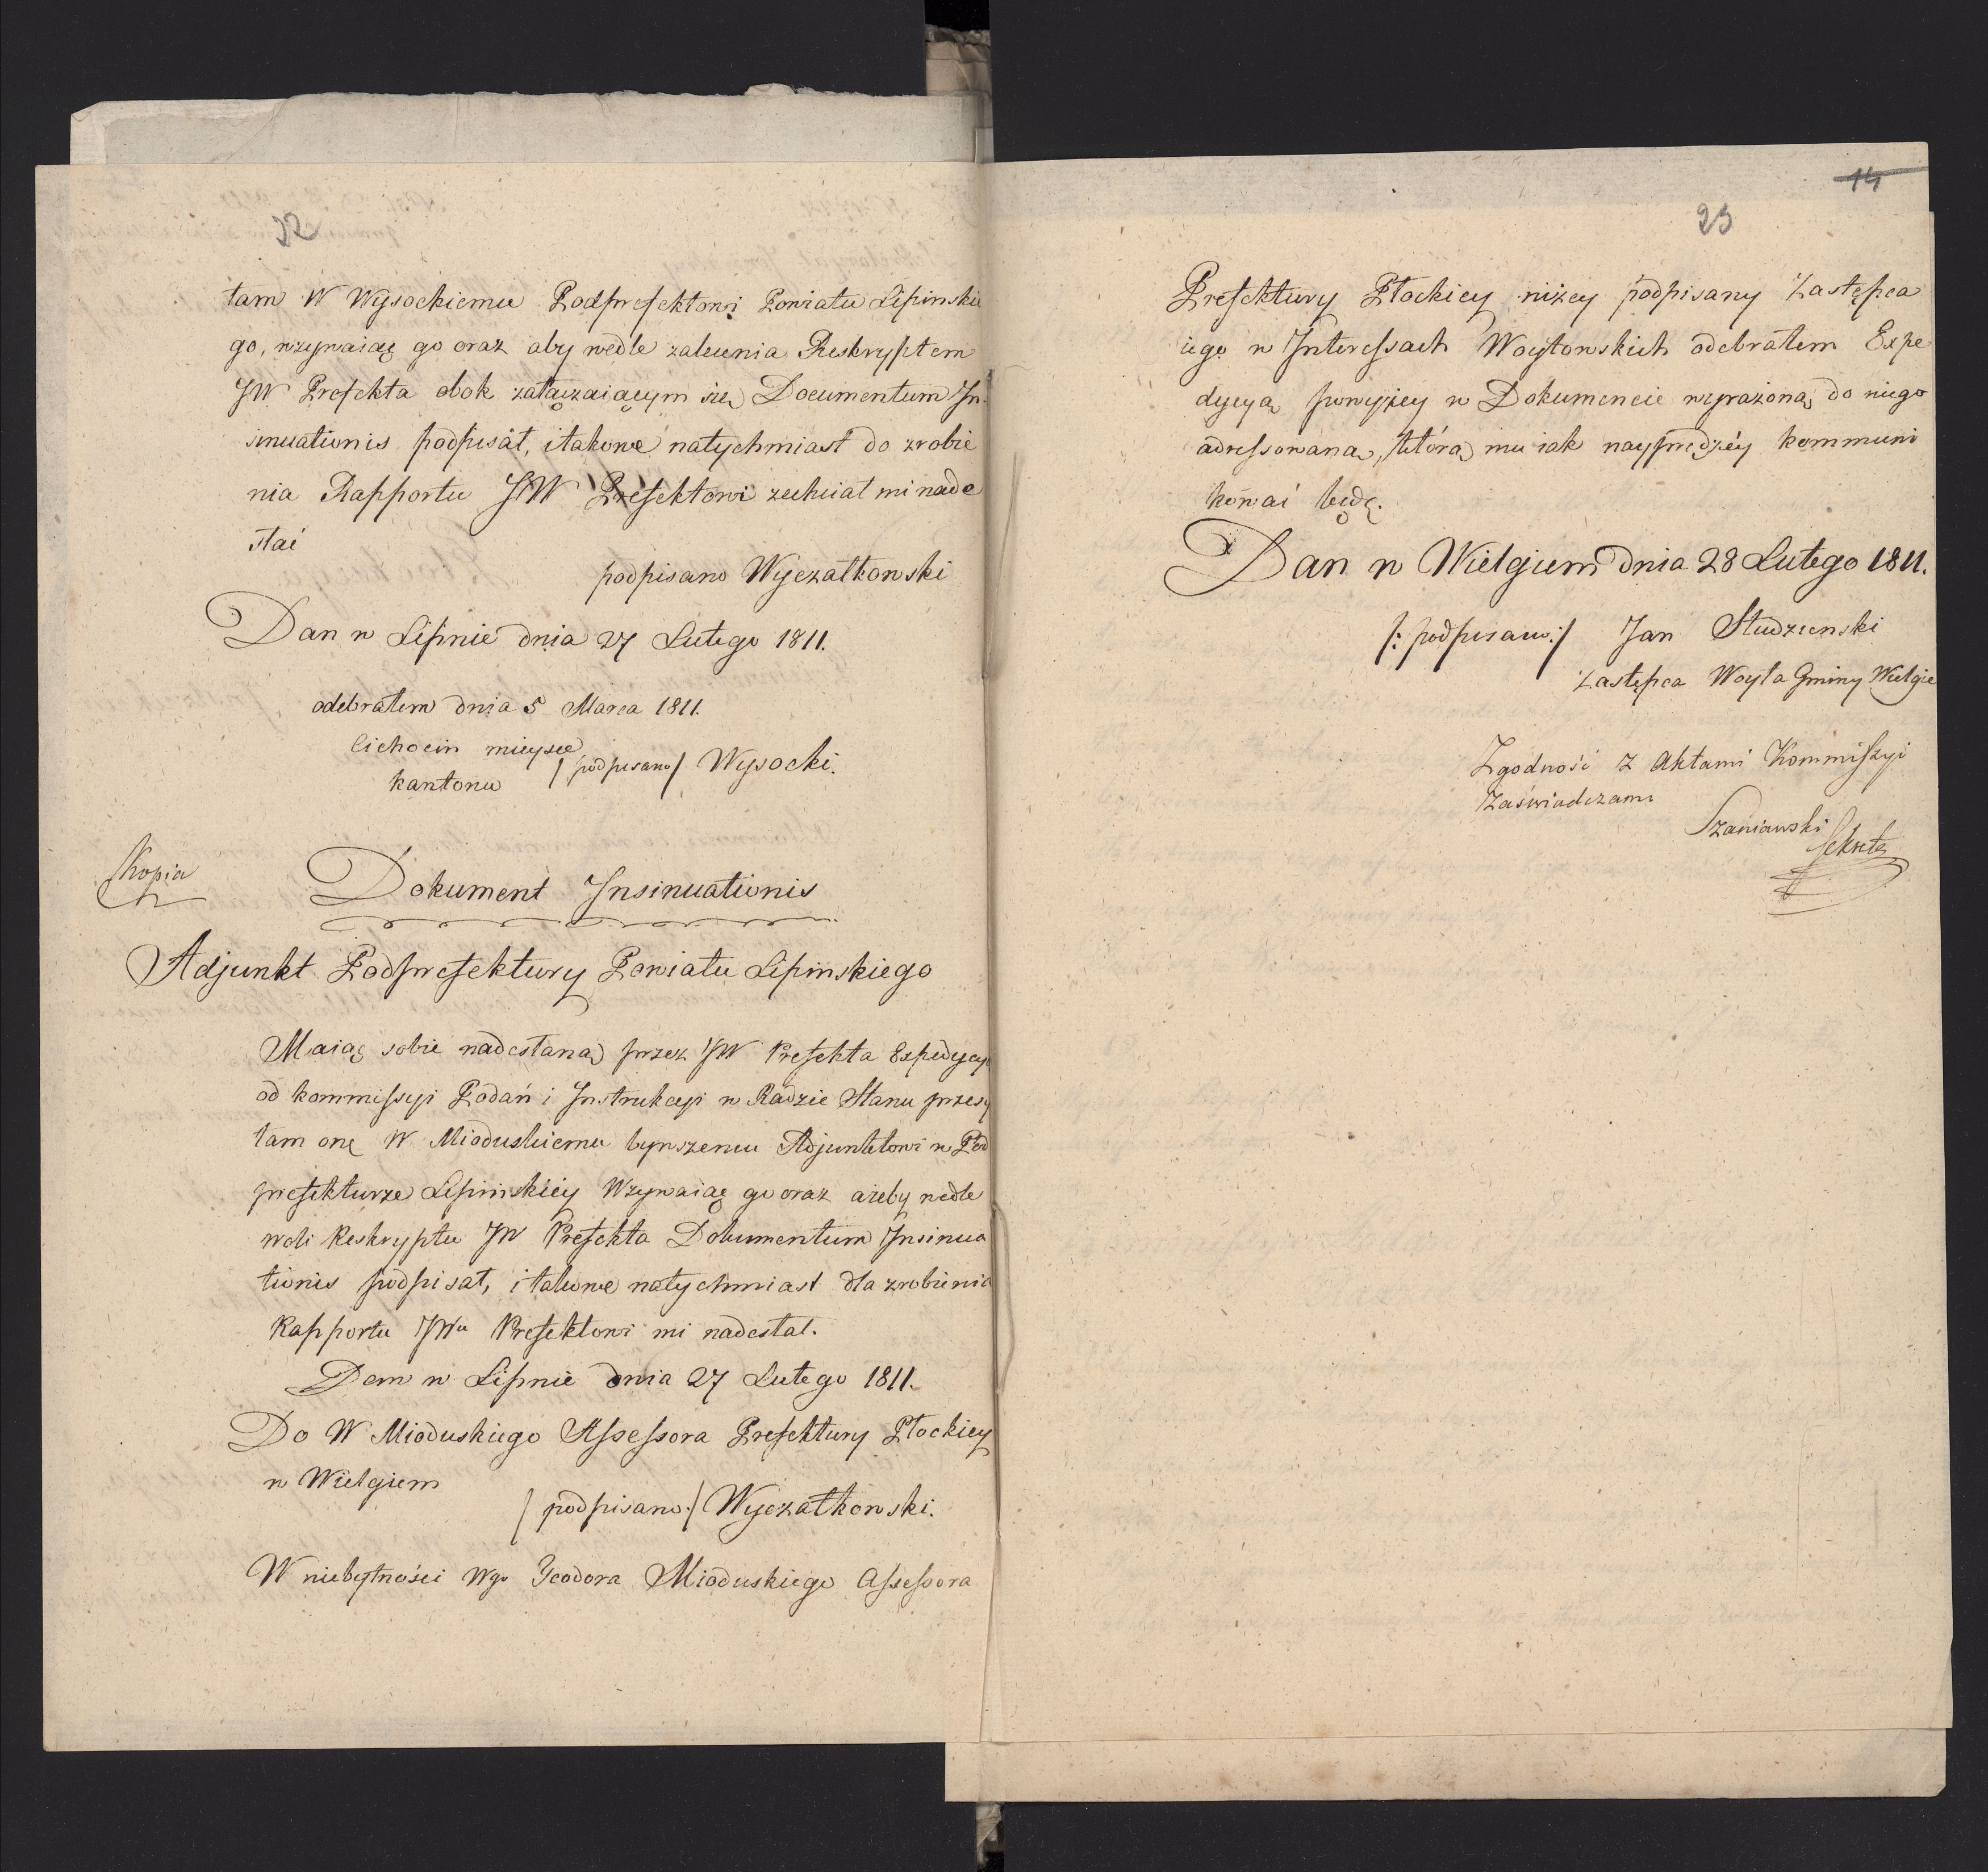 22
łam W Wysockiemu Podprefektowi Powiatu Lipinskie
go, wzywaiąc go oraz aby wedle zalecenia Reskryptem
JW Prefekta obok załączaiącym się Documentum In-
sinuationis podpisał, i takowe natychmiast do zrobie
nia Rapportu JW Prefektowi zechciał mi nade
słać
podpisano Wyczałkowski
Dan w Lipnie dnia 27 Lutego 1811.
odebrałem dnia 5 Marca 1811.
Cichocin mieysce
kantonu /podpisano/ Wysocki.
Kopia
Dokument Insinuationis
Adjunkt Podprefektury Powiatu Lipinskiego
Maiąc sobie nadesłaną przez JW Prefekta Expedycyą
od kommissyi Podań i Instrukcyi w Radzie Stanu przesy
łam onę W Mioduskiemu bywszemu Adjunktowi w Pod
prefekturze Lipinskiéy Wzywaiąc go oraz ażeby wedle
woli Reskryptu JW Prefekta Dokumentum Insinua
tionis podpisał, i takowe natychmiast dla zrobienia
Rapportu JWu Prefektowi mi nadesłał.
Dan w Lipnie dnia 27 Lutego 1811.
Do W Mioduskiego Assessora Prefektury Płockiey
w Wielgiem
/podpisano/ Wyczałkowski.
W niebytności Wgo Teodora Mioduskiego Assessora
14
23
Prefektury Płockiey niżey podpisany Zastępca
iego w Interessach Woytowskich odebrałem Expe
dycyą powyżey w Dokumencie wyrażoną do niego
adressowaną, którą mu iak nayprędzéy kommuni
kować będę.
Dan w Wielgiem dnia 28 Lutego 1811.
/: podpisano :/ Jan Studzienski
Zastępca Woyta Gminy Wielgie
Zgodność z Aktami Kommissyi
Zaświadczam
Szaniawski
Sekretz